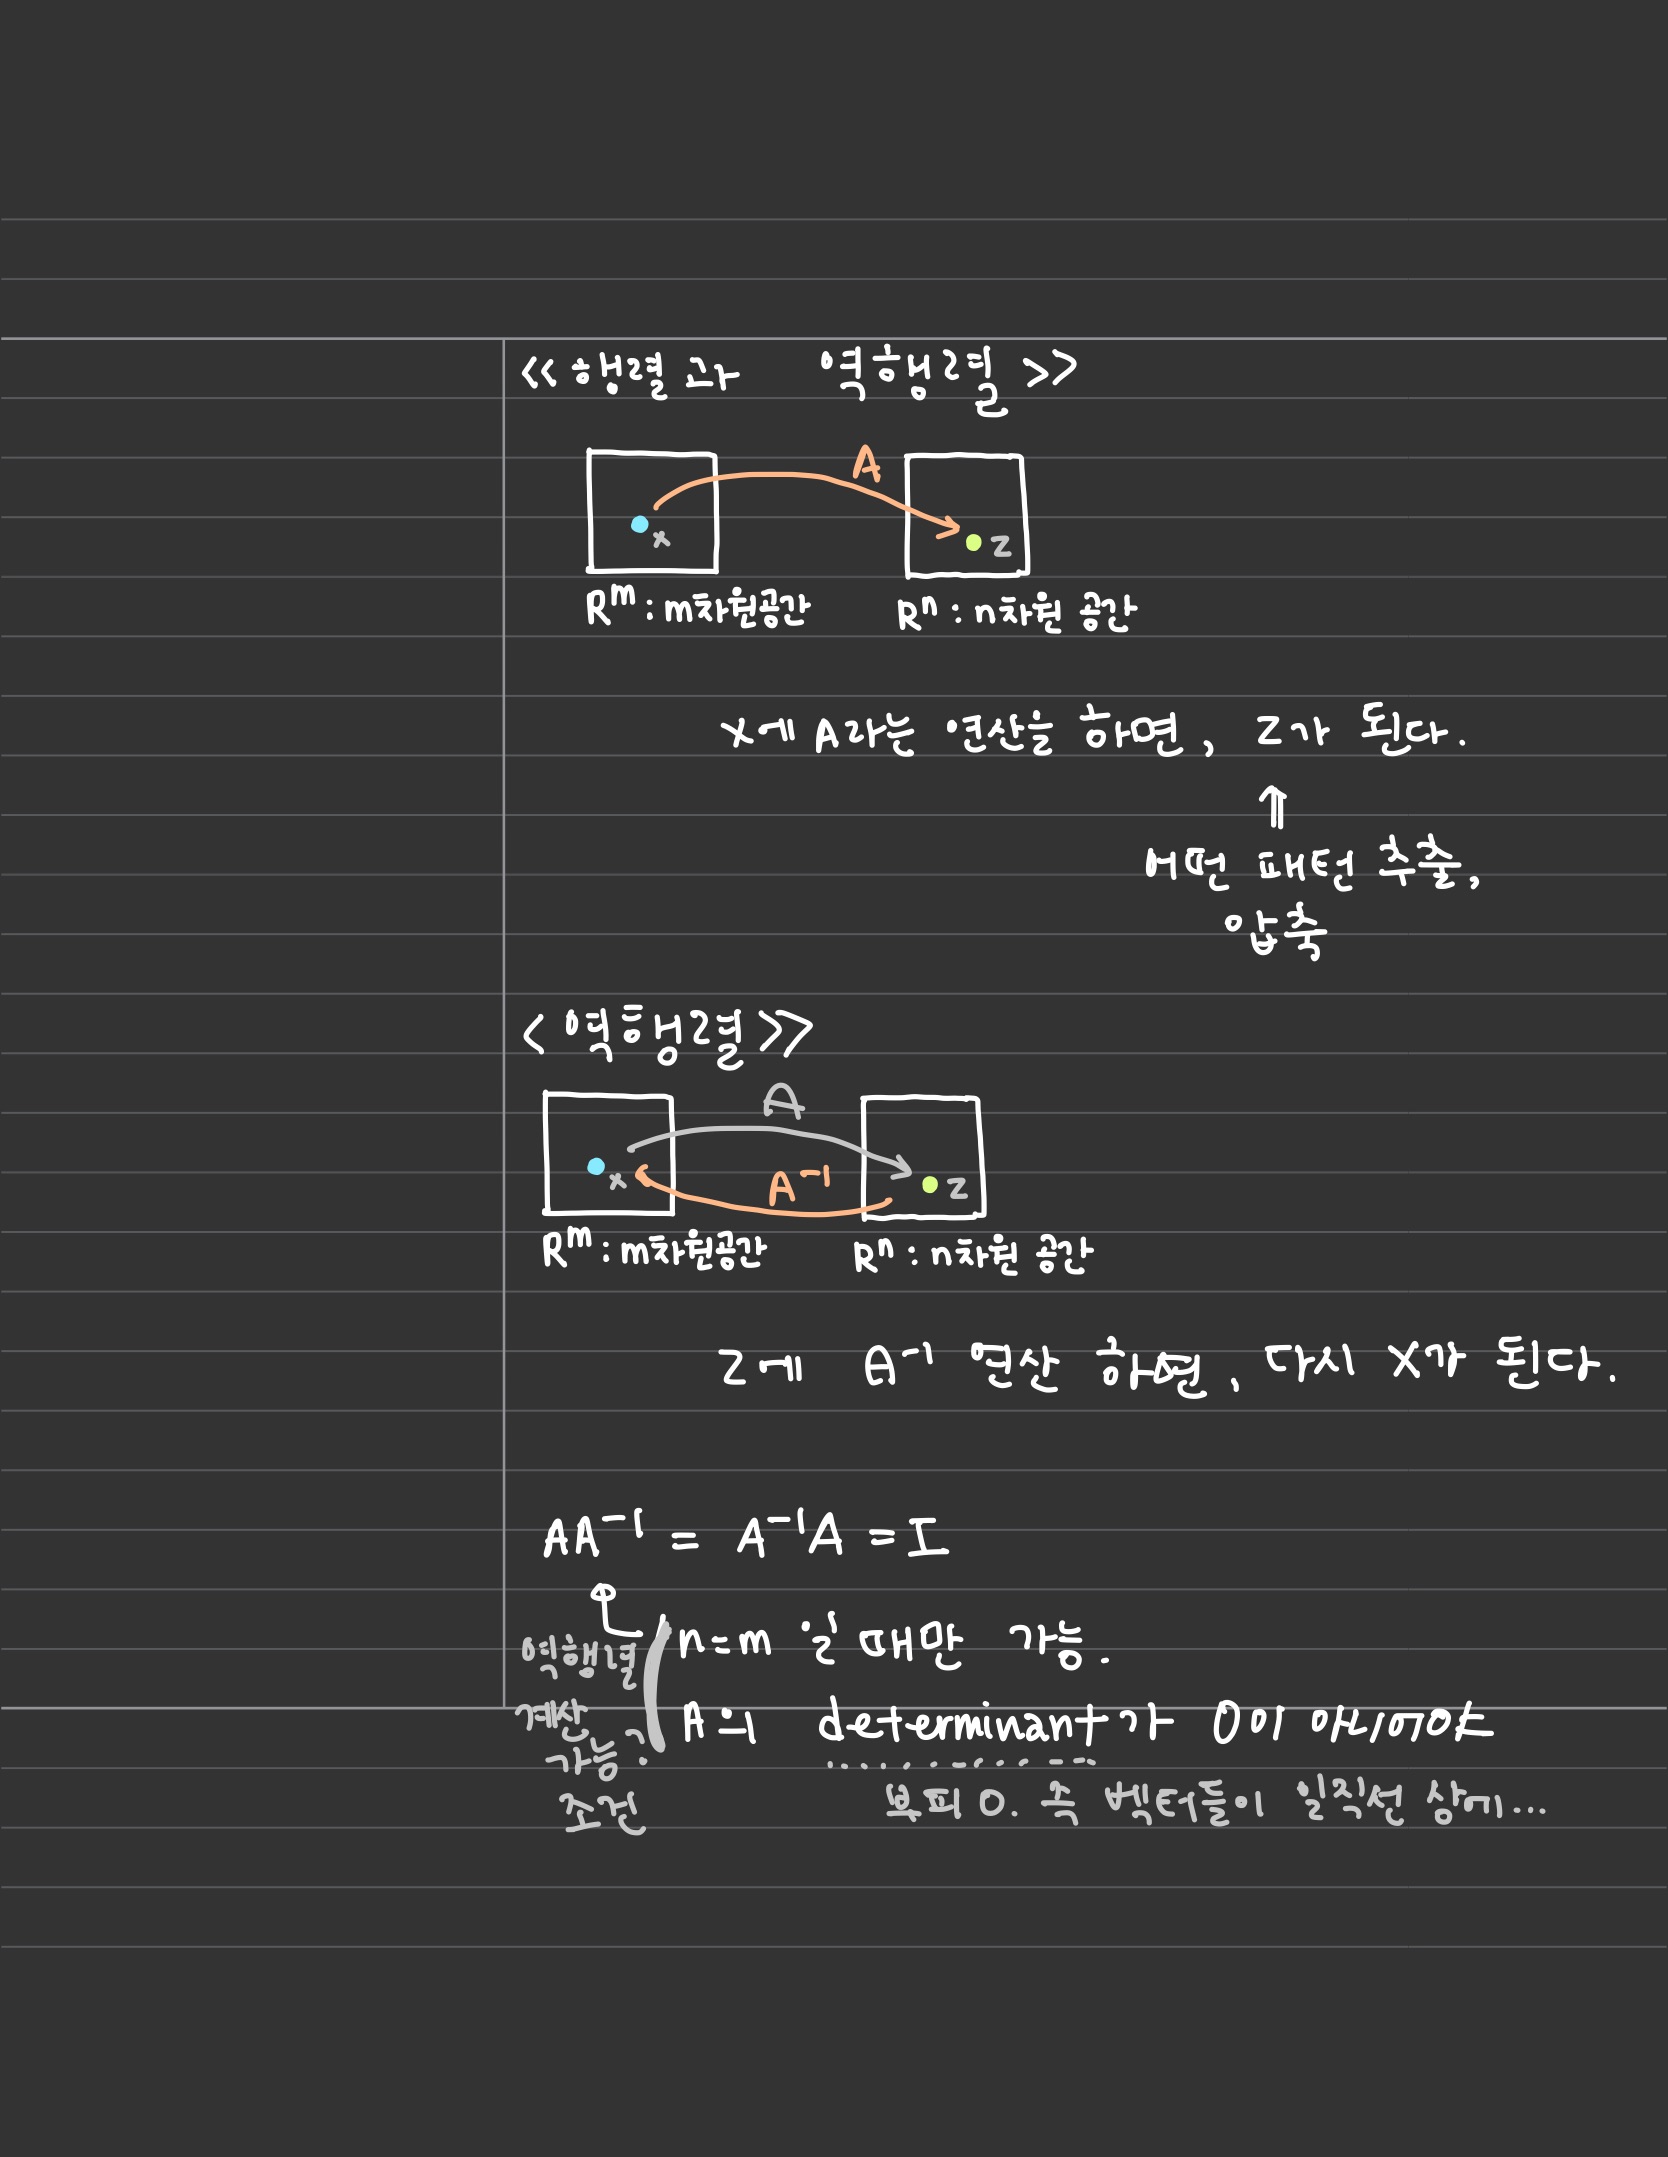 << 행렬과 역행렬 >>
A
x
z
Rᵐ : m차원공간 Rⁿ : n차원 공간
x에 A라는 연산을 하면, z가 된다.
↑
어떤 패턴 추출,
압축
< 역행렬 >>
A
x
A⁻¹
z
Rᵐ : m차원공간 Rⁿ : n차원 공간
z에 A⁻¹ 연산 하면, 다시 x가 된다.
AA⁻¹ = A⁻¹A = I
역행렬
계산
가능?
조건
n=m 일 때만 가능.
A의 determinant가 0이 아니어야
부피 0. 즉 벡터들이 일직선 상에...